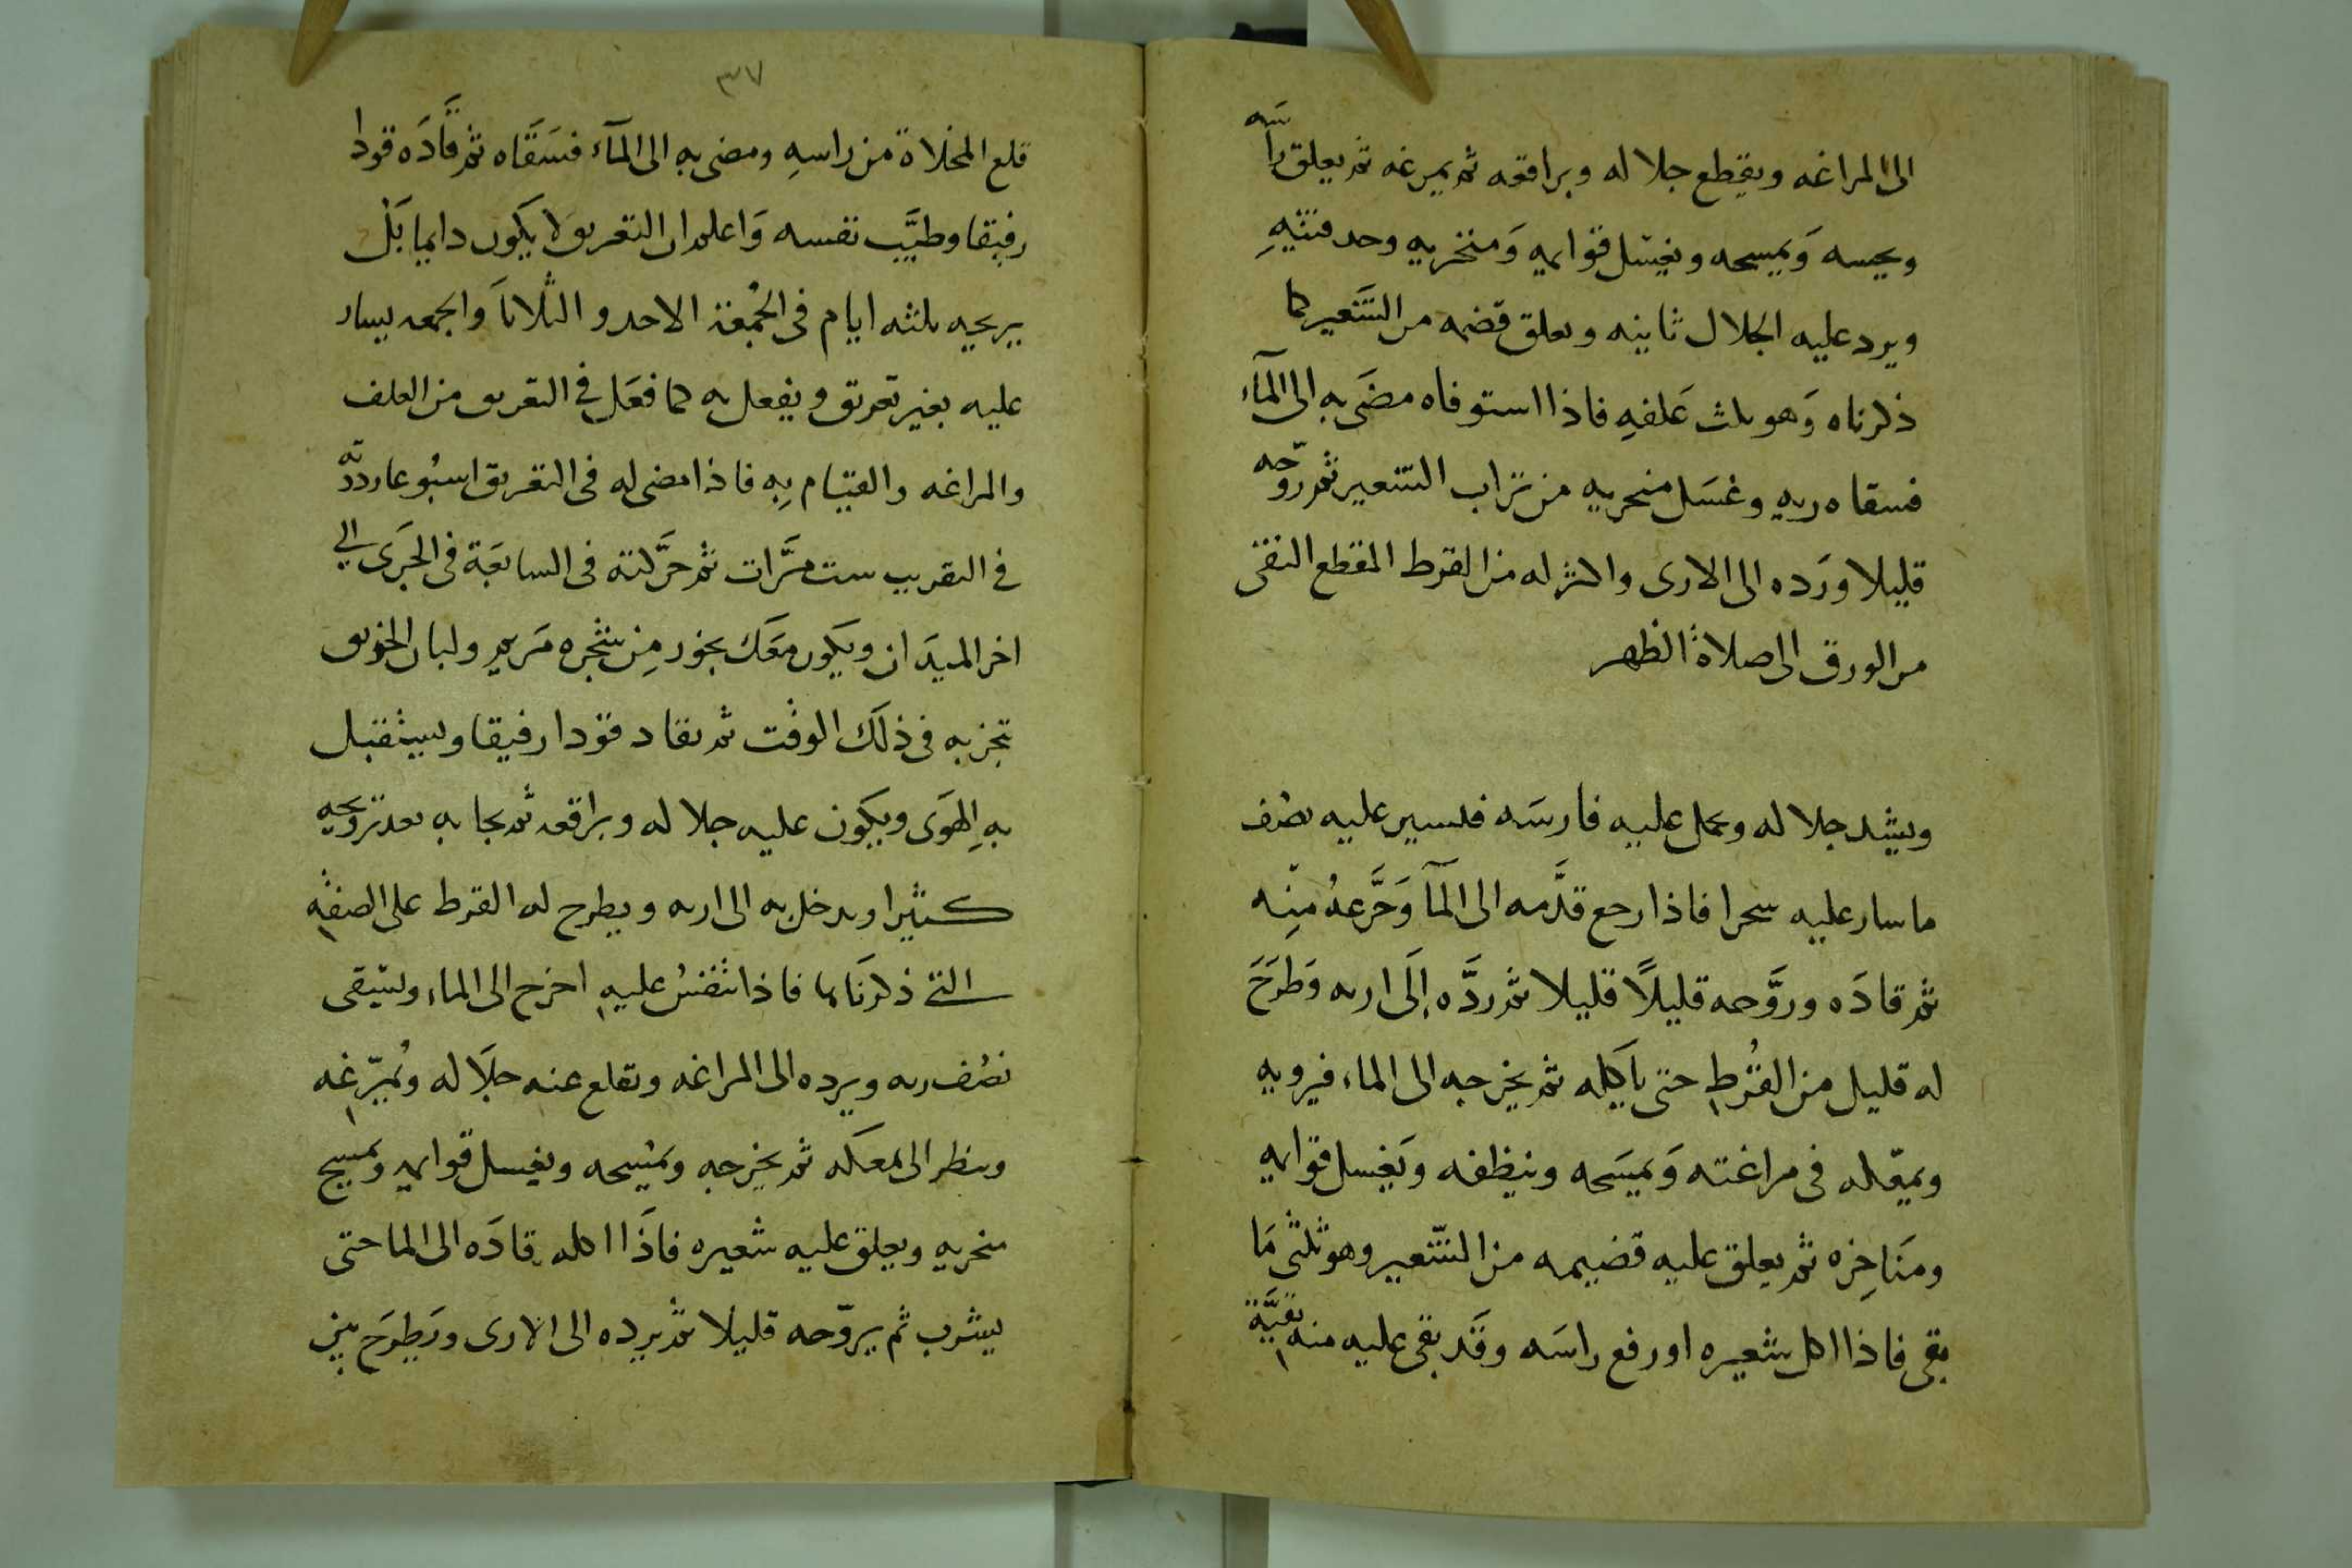 الى المراغه ويقطع جلاله وبراقعه ثم يمرغه ثم يعلق راسه
ويحسه وَيمسحه ويغسل قوايمه وَمنخريه وحدقتيهِ
ويرد عليه الجلال ثانيه ويعلق قضمه من الشَعير كما
ذكرناه وَهو ثلث عَلفهِ فاذا استوفاه مضَى به الى المآء
فسقاه ريه وغسَل منخريه من تراب الشعير ثم روّحه
قليلا ورَده الى الارى واكثر له من القرط المقطع النقى
من الورق الى صلاة الظهر
ويشد جلاله ويحمل عليه فارسَه فيسير عليه نصف
ما سار عليه سحرا فاذا رجع قدَّمه الى المآ وَجَرَّعهُ مِنه
ثم قادَه وروَّحه قليلاً قليلا ثم ردَّه إلَى اريه وَطرَحَ
له قليل من القُرطِ حتى ياكله ثم يخرجه الى الماء فيرويه
ويمعّكه فى مراغته وَيمسَحه وينظفه ويَغسل قوايمه
ومنَاخِره ثم يعلق عليه قضيمه من الشّعير وهو ثلثى مَا
بقى فاذا اكل شعيره او رفع راسَه وقَد بقى عليه منه بقيَّة
٣٧
قلع المخلاة من راسهِ ومضى به الى المآء فسَقَاه ثم قَادَه قودا
رفيقا وطيَّب نفسه وَاعلم ان التعريق لا يكَون دايما بَلْ
يريحه ثلثه ايام فى الجُمْعَة الاحد و الثلاثاَ وَالجمعه يسار
عليه بغير تعريق ويفعل به كما فعَل فى التعريق من العلف
والمراغه والقيام بِهِ فاذا مضى له فى التعريق اسبُوعا ردَّه
فى التقريب ست مرَّات ثم حرَّكته فى السابعَة فى الجرَى الى
اخر الميدَان ويكون معَك بخور مِن شجره مَريم ولبان
تبخر به فى ذلَك الوقت ثم يقاد قوَدا رفيقا ويستقبل
بهِ الهوَى ويكون عليه جلاله وبراقعه ثم يجا به بعد ترويحه
كثيرا ويدخل به الى اريه ويطرح له القرط على الصفه
التى ذكرنَاها فاذا تنفسُ عليهِ اخرج الى الماء ويسقى
نصْف ريه ويرده الى المراغه ويقلع عنه جلَاله ويُمرّغه
وينظر الى تمعكه ثم يخرجه ويمْسحه ويغسل قوايمه ويمسح
منخريه ويعلق عليه شعيره فاذَا اكله قادَه الى الما حتى
يشرب ثم يروّحه قليلا ثم يرده الى الارى ويَطرَح بين